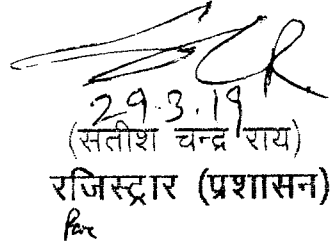 29.3.19
(सतीश चन्द्र राय)
रजिस्ट्रार (प्रशासन)